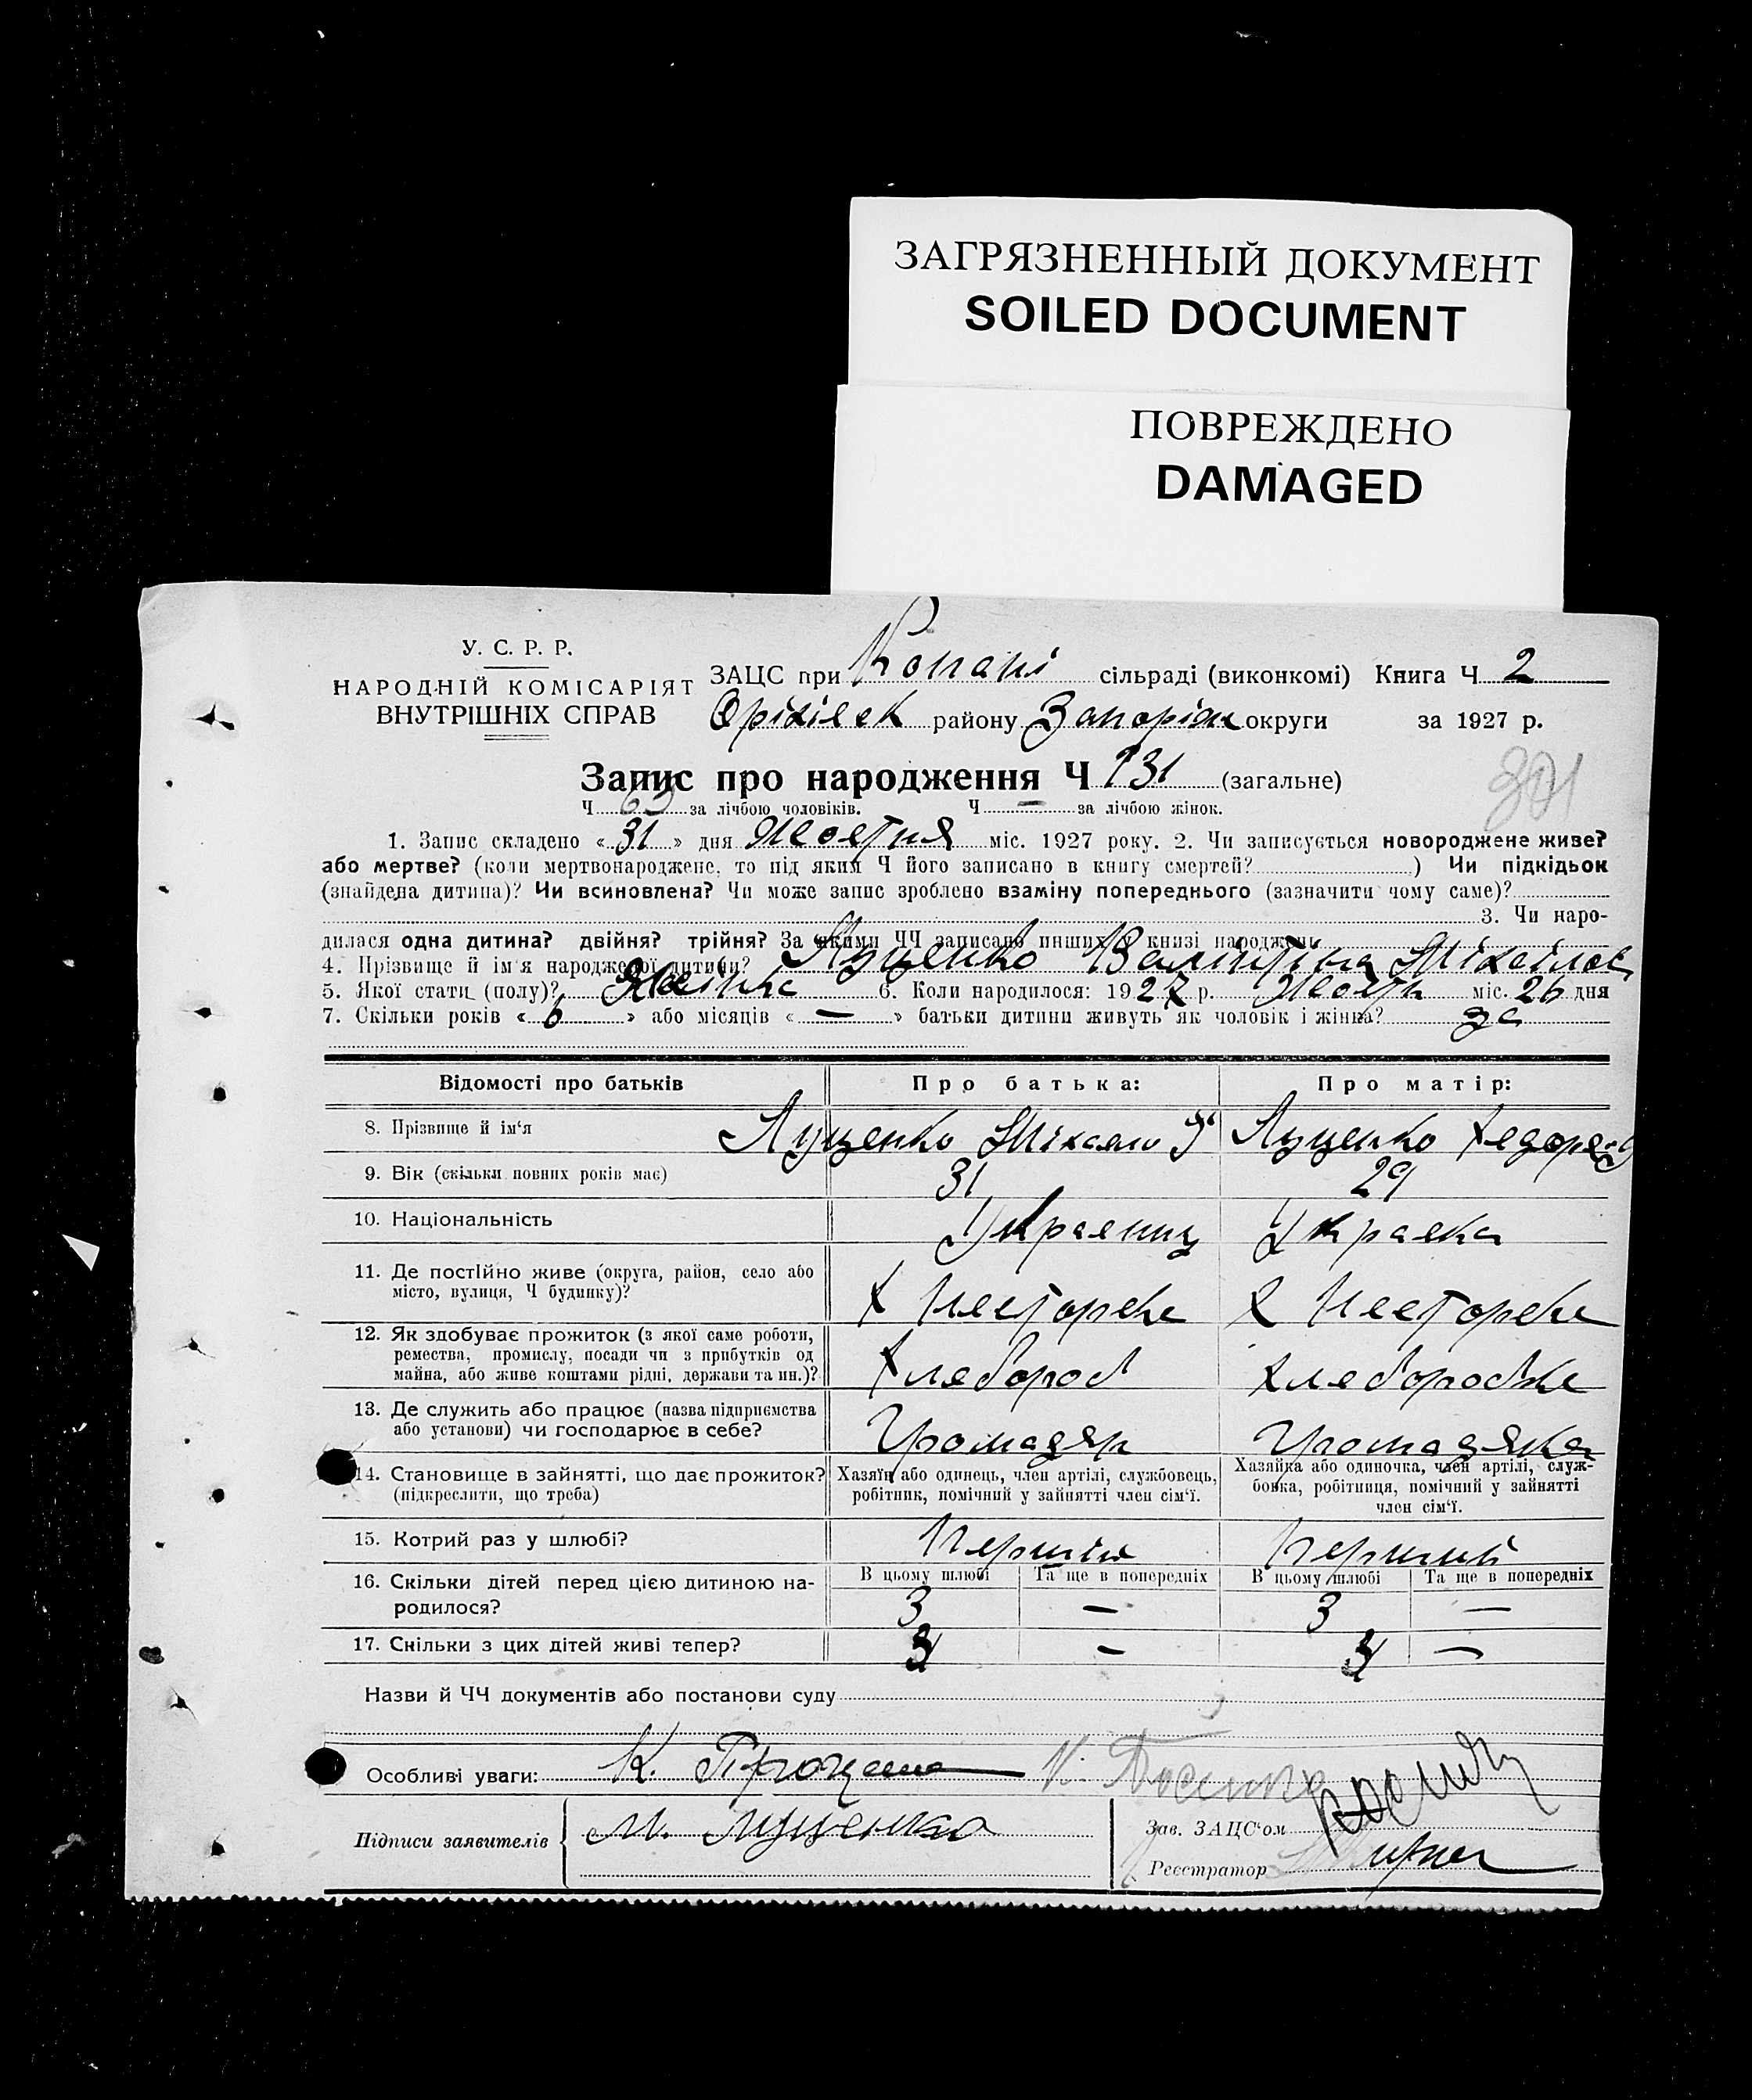 ЗАГРЯЗНЕННЫЙ ДОКУМЕНТ
SOILED DOCUMENT
ПОВРЕЖДЕНО
DAMAGED
У. С. Р. Р.
НАРОДНІЙ КОМІСАРІЯТ
ВНУТРІШНІХ СПРАВ
ЗАЦС при Копані сільраді (виконкомі) Книга Ч 2
Оріхівск району Запоріж округи за 1927 р.
Запис про народження Ч 131 (загальне)
301
Ч 63 за лічбою чоловіків. Ч — за лічбою жінок.
1. Запис складено «31» дня Жовтня міс. 1927 року. 2. Чи записується новороджене живе?
або мертве? (коли мертвонароджене, то під яким Ч його записано в книгу смертей? ) Чи підкідьок
(знайдена дитина)? Чи всиновлена? Чи може запис зроблено взаміну попереднього (зазначити чому саме)?
3. Чи наро-
дилася одна дитина? двійня? трійня? За якими ЧЧ записано инших у книзі народжень
4. Прізвище й ім'я народженої дитини? Луценко Валінтіна Міхаілов
5. Якої стати (полу)? 6. Коли народилося: 1927 р. Жовтн міс. 26 дня
7. Скільки років «6» або місяців «—» батьки дитини живуть як чоловік і жінка?
Відомості про батьків Про батька: Про матір:
8. Прізвище й ім'я Луценко Міхаило Луценко
9. Вік (скільки повних років має) 31 29
10. Національність Украениц Украека
11. Де постійно живе (округа, район, село або
місто, вулиця, Ч будинку)? Х Нестореве Х Нестореве
12. Як здобуває прожиток (з якої саме роботи,
ремества, промислу, посади чи з прибутків од
майна, або живе коштами рідні, держави та ин.)? Хлебороб Хлеборобка
13. Де служить або працює (назва підприємства
або установи) чи господарює в себе? Громадян Громадянка
14. Становище в зайнятті, що дає прожиток?
(підкреслити, що треба)
Хазяїн або одинець, член артілі, службовець,
робітник, помічний у зайнятті член сім'ї.
Хазяйка або одиночка, член артілі, служ-
бовка, робітниця, помічний у зайнятті
член сім'ї.
15. Котрий раз у шлюбі? Першій Перший
В цьому шлюбі Та ще в попередніх В цьому шлюбі Та ще в попередніх
16. Скільки дітей перед цією дитиною на-
родилося? 3 — 3 —
17. Скільки з цих дітей живі тепер? 3 — 3 —
Назви й ЧЧ документів або постанови суду
Особливі уваги: К.
Підписи заявителів М. Луценко
Зав. ЗАЦС'ом
Реєстратор